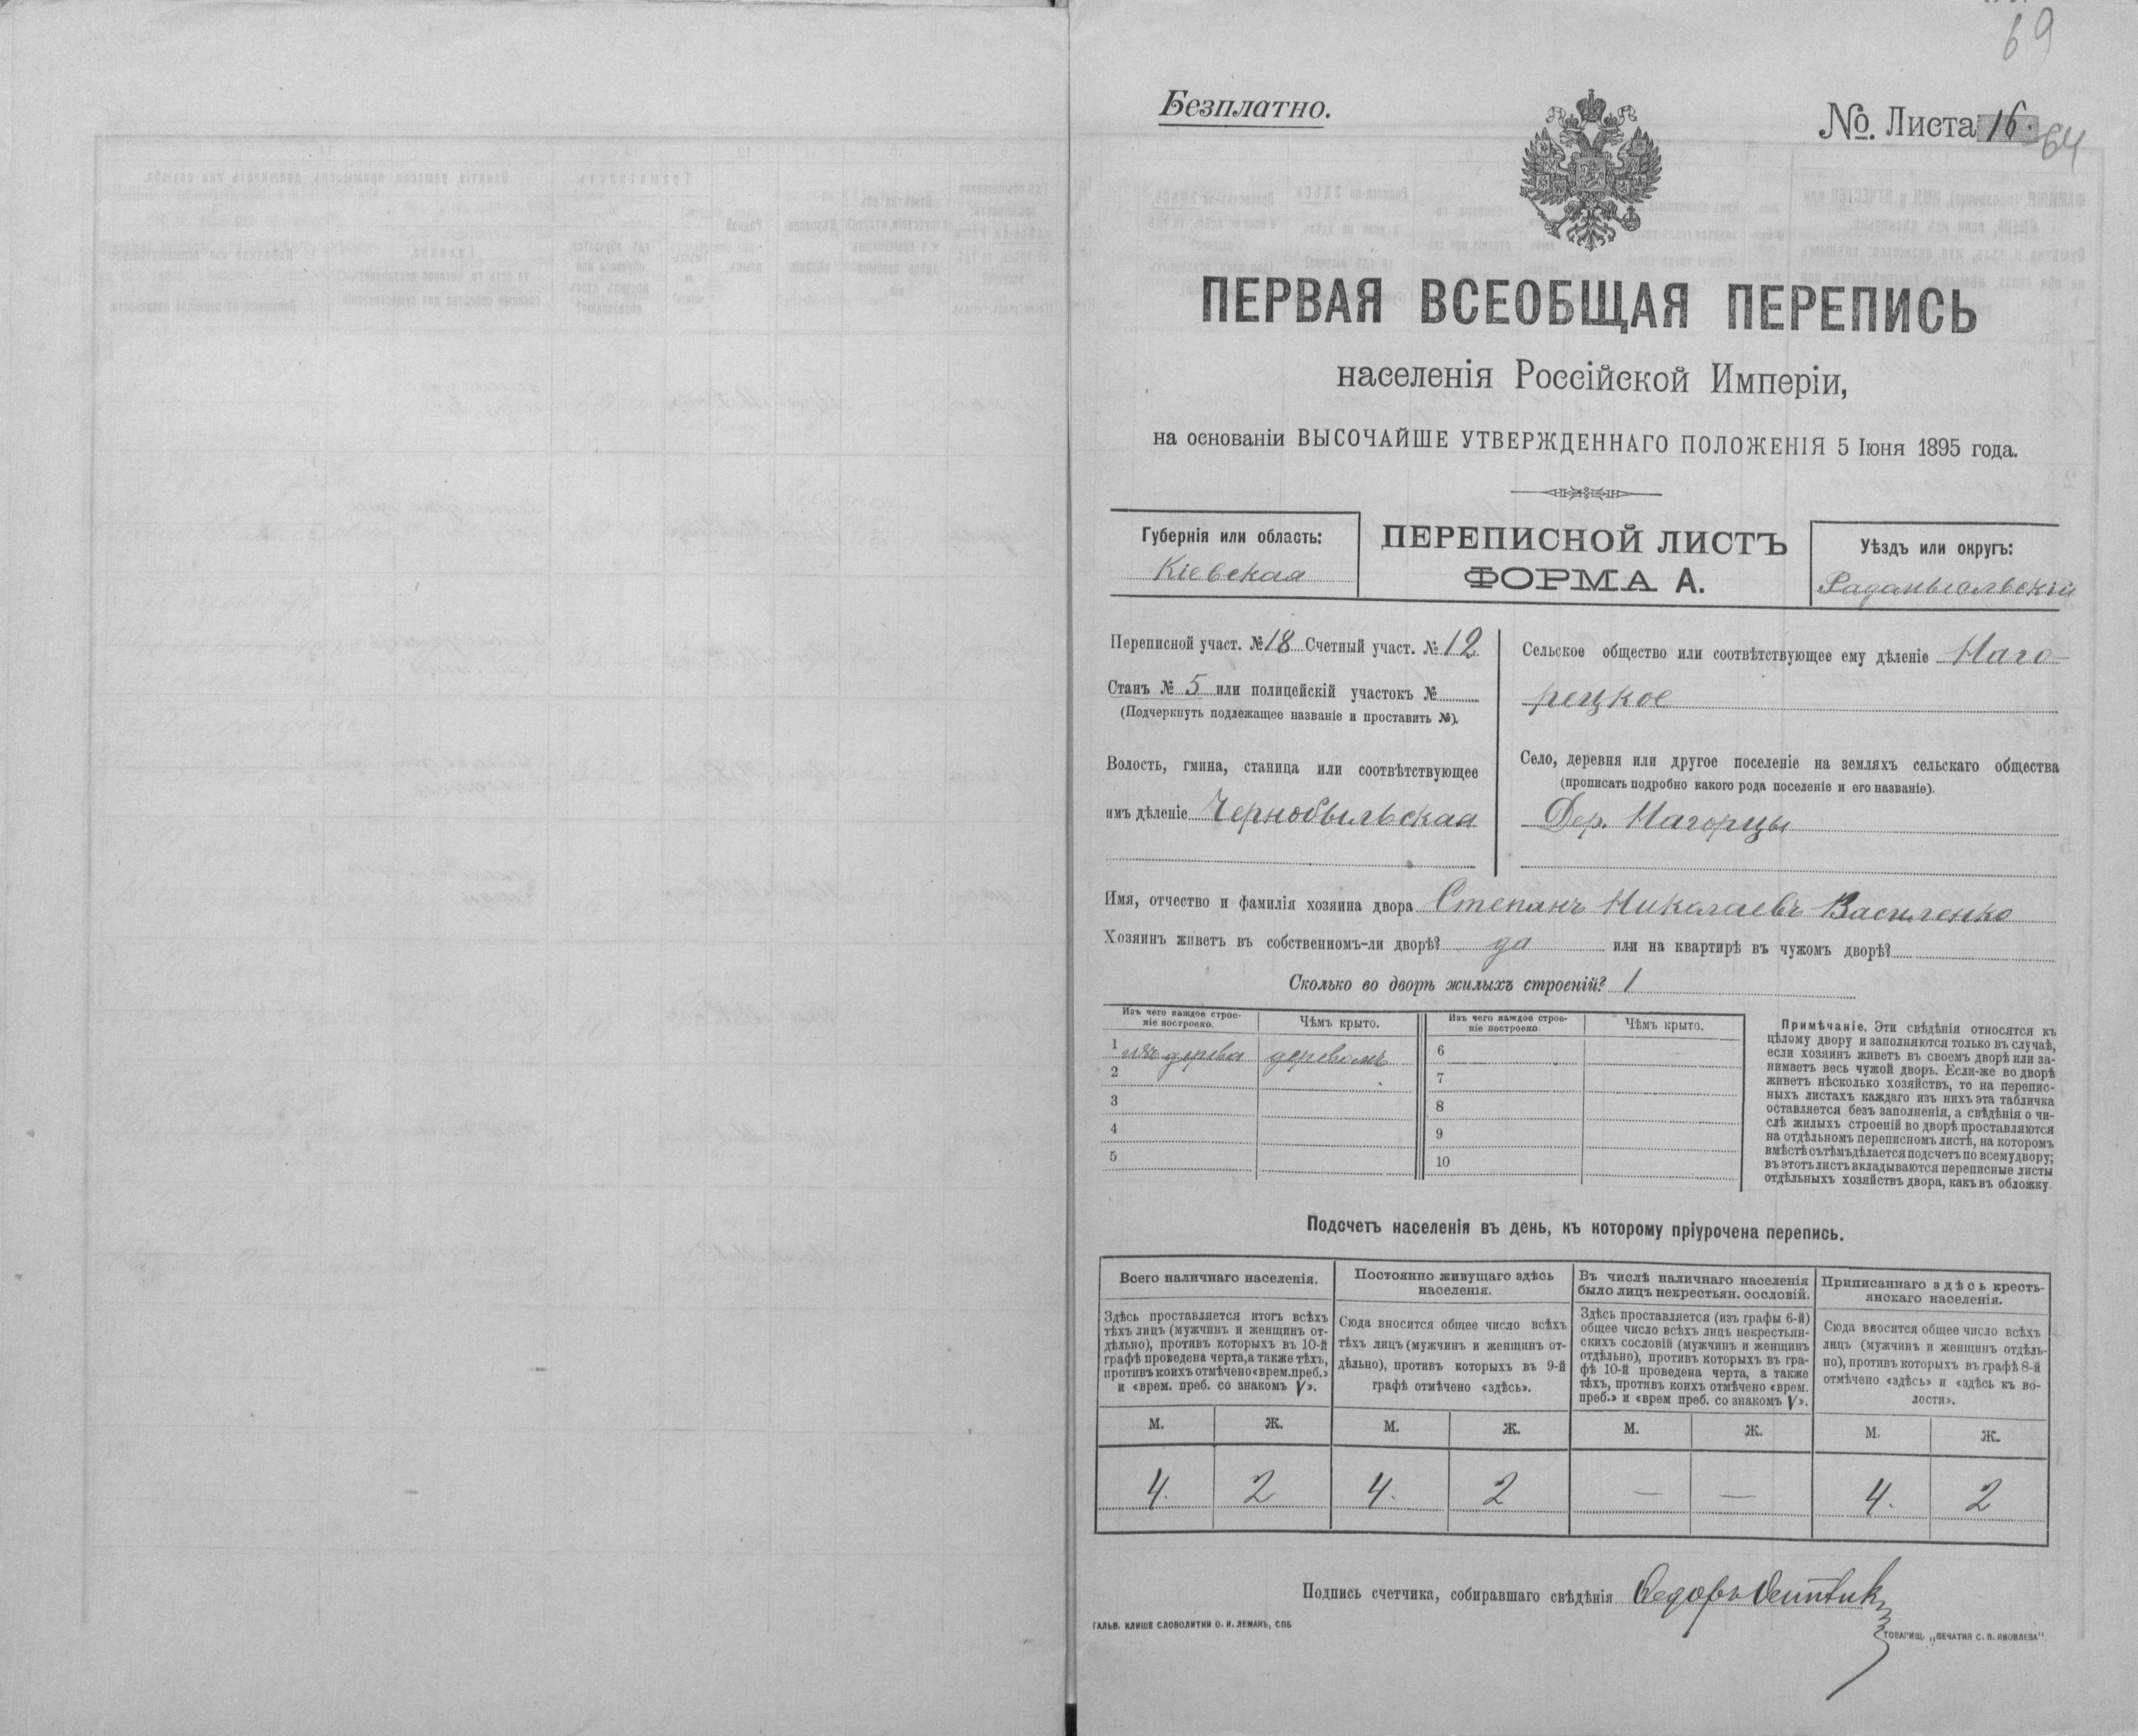 69
Безплатно.
№. Листа 16.
64
ПЕРВАЯ ВСЕОБЩАЯ ПЕРЕПИСЬ
населенія Россійской Имперіи,
на основаніи ВЫСОЧАЙШЕ УТВЕРЖДЕННАГО ПОЛОЖЕНІЯ 5 Іюня 1895 года.
Губернія или область:
Кіевская
ПЕРЕПИСНОЙ ЛИСТЪ
ФОРМА А.
Уѣздъ или округъ:
Радомысльскій
Переписной участ. № 18 Счетный участ. № 12
Станъ № 5 или полицейскій участокъ №
(Подчеркнуть подлежащее названіе и проставить №).
Волость, гмина, станица или соотвѣтствующее
имъ дѣленіе Чернобыльская
Сельское общество или соотвѣтствующее ему дѣленіе Наго-
рецкое
Село, деревня или другое поселеніе на земляхъ сельскаго общества
(прописать подробно какого рода поселеніе и его названіе).
Дер. Нагорцы
Имя, отчество и фамилія хозяина двора Степанъ Николаевъ Василенко
Хозяинъ живетъ въ собственномъ-ли дворѣ? да или на квартирѣ въ чужомъ дворѣ?
Сколько во дворѣ жилыхъ строеній? 1
Изъ чего каждое строе-
ніе построено.
Чѣмъ крыто.
Изъ чего каждое строе-
ніе построено
Чѣмъ крыто.
1 изъ дерева деревомъ
6
2
7
3
8
4
9
5
10
Примѣчаніе. Эти свѣдѣнія относятся къ
цѣлому двору и заполняются только въ случаѣ,
если хозяинъ живетъ въ своемъ дворѣ или за-
нимаетъ весь чужой дворъ. Если-же во дворѣ
живетъ нѣсколько хозяйствъ, то на перепис-
ныхъ листахъ каждаго изъ нихъ эта табличка
оставляется безъ заполненія, а свѣдѣнія о чи-
слѣ жилыхъ строеній во дворѣ проставляются
на отдѣльномъ переписномъ листѣ, на которомъ
вмѣстѣ съ тѣмъ дѣлается подсчетъ по всему двору;
въ этотъ листъ вкладываются переписные листы
отдѣльныхъ хозяйствъ двора, какъ въ обложку.
Подсчетъ населенія въ день, къ которому пріурочена перепись.
Всего наличнаго населенія.
Здѣсь проставляется итогъ всѣхъ
тѣхъ лицъ (мужчинъ и женщинъ от-
дѣльно), противъ которыхъ въ 10-й
графѣ проведена черта, а также тѣхъ,
противъ коихъ отмѣчено «врем. преб.»
и «врем. преб. со знакомъ V».
Постоянно живущаго здѣсь
населенія.
Сюда вносится общее число всѣхъ
тѣхъ лицъ (мужчинъ и женщинъ от-
дѣльно), противъ которыхъ въ 9-й
графѣ отмѣчено «здѣсь».
Въ числѣ наличнаго населенія
было лицъ некрестьян. сословій.
Здѣсь проставляется (изъ графы 6-й)
общее число всѣхъ лицъ некрестьян-
скихъ сословій (мужчинъ и женщинъ
отдѣльно), противъ которыхъ въ гра-
фѣ 10-й проведена черта, а также
тѣхъ, противъ коихъ отмѣчено «врем.
преб.» и «врем преб. со знакомъ V».
Приписаннаго здѣсь кресть-
янскаго населенія.
Сюда вносится общее число всѣхъ
лицъ (мужчинъ и женщинъ отдѣль-
но), противъ которыхъ въ графѣ 8-й
отмѣчено «здѣсь» и «здѣсь къ во-
лости».
М. Ж. М. Ж. М. Ж. М. Ж.
4. 2 4. 2 — — 4. 2
Подпись счетчика, собиравшаго свѣдѣнія Ѳедоръ
ГАЛЬВ. КЛИШЕ СЛОВОЛИТНИ О. И. ЛЕМАНЪ, СПБ
ТОВАРИЩ. „ПЕЧАТНЯ С. П. ЯКОВЛЕВА"